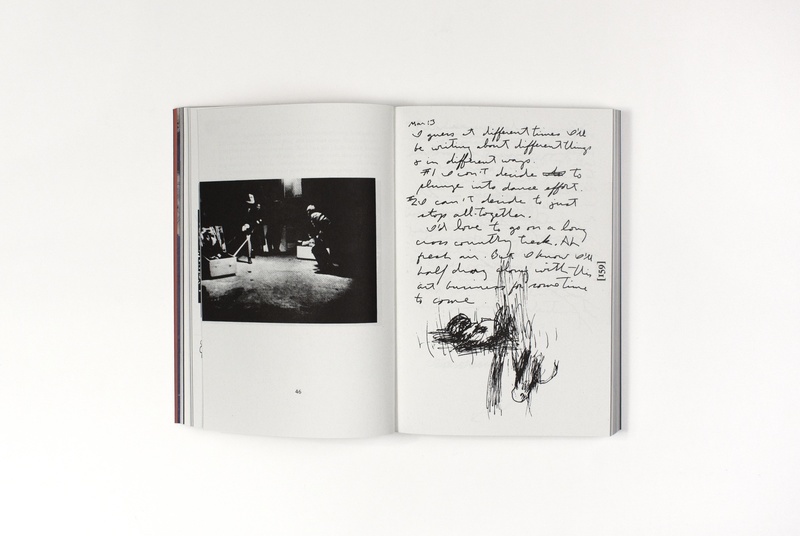 46
Mar 13
I guess at different times I'll
be writing about different things
& in different ways.
#1 I can't decide to
plunge into dance effort.
#2 I can't decide to just
stop alltogether.
I'd love to go on a long
cross country trek. Ah
fresh air. But I know I'll
half drag along with the
art business for some time
to come
[159]